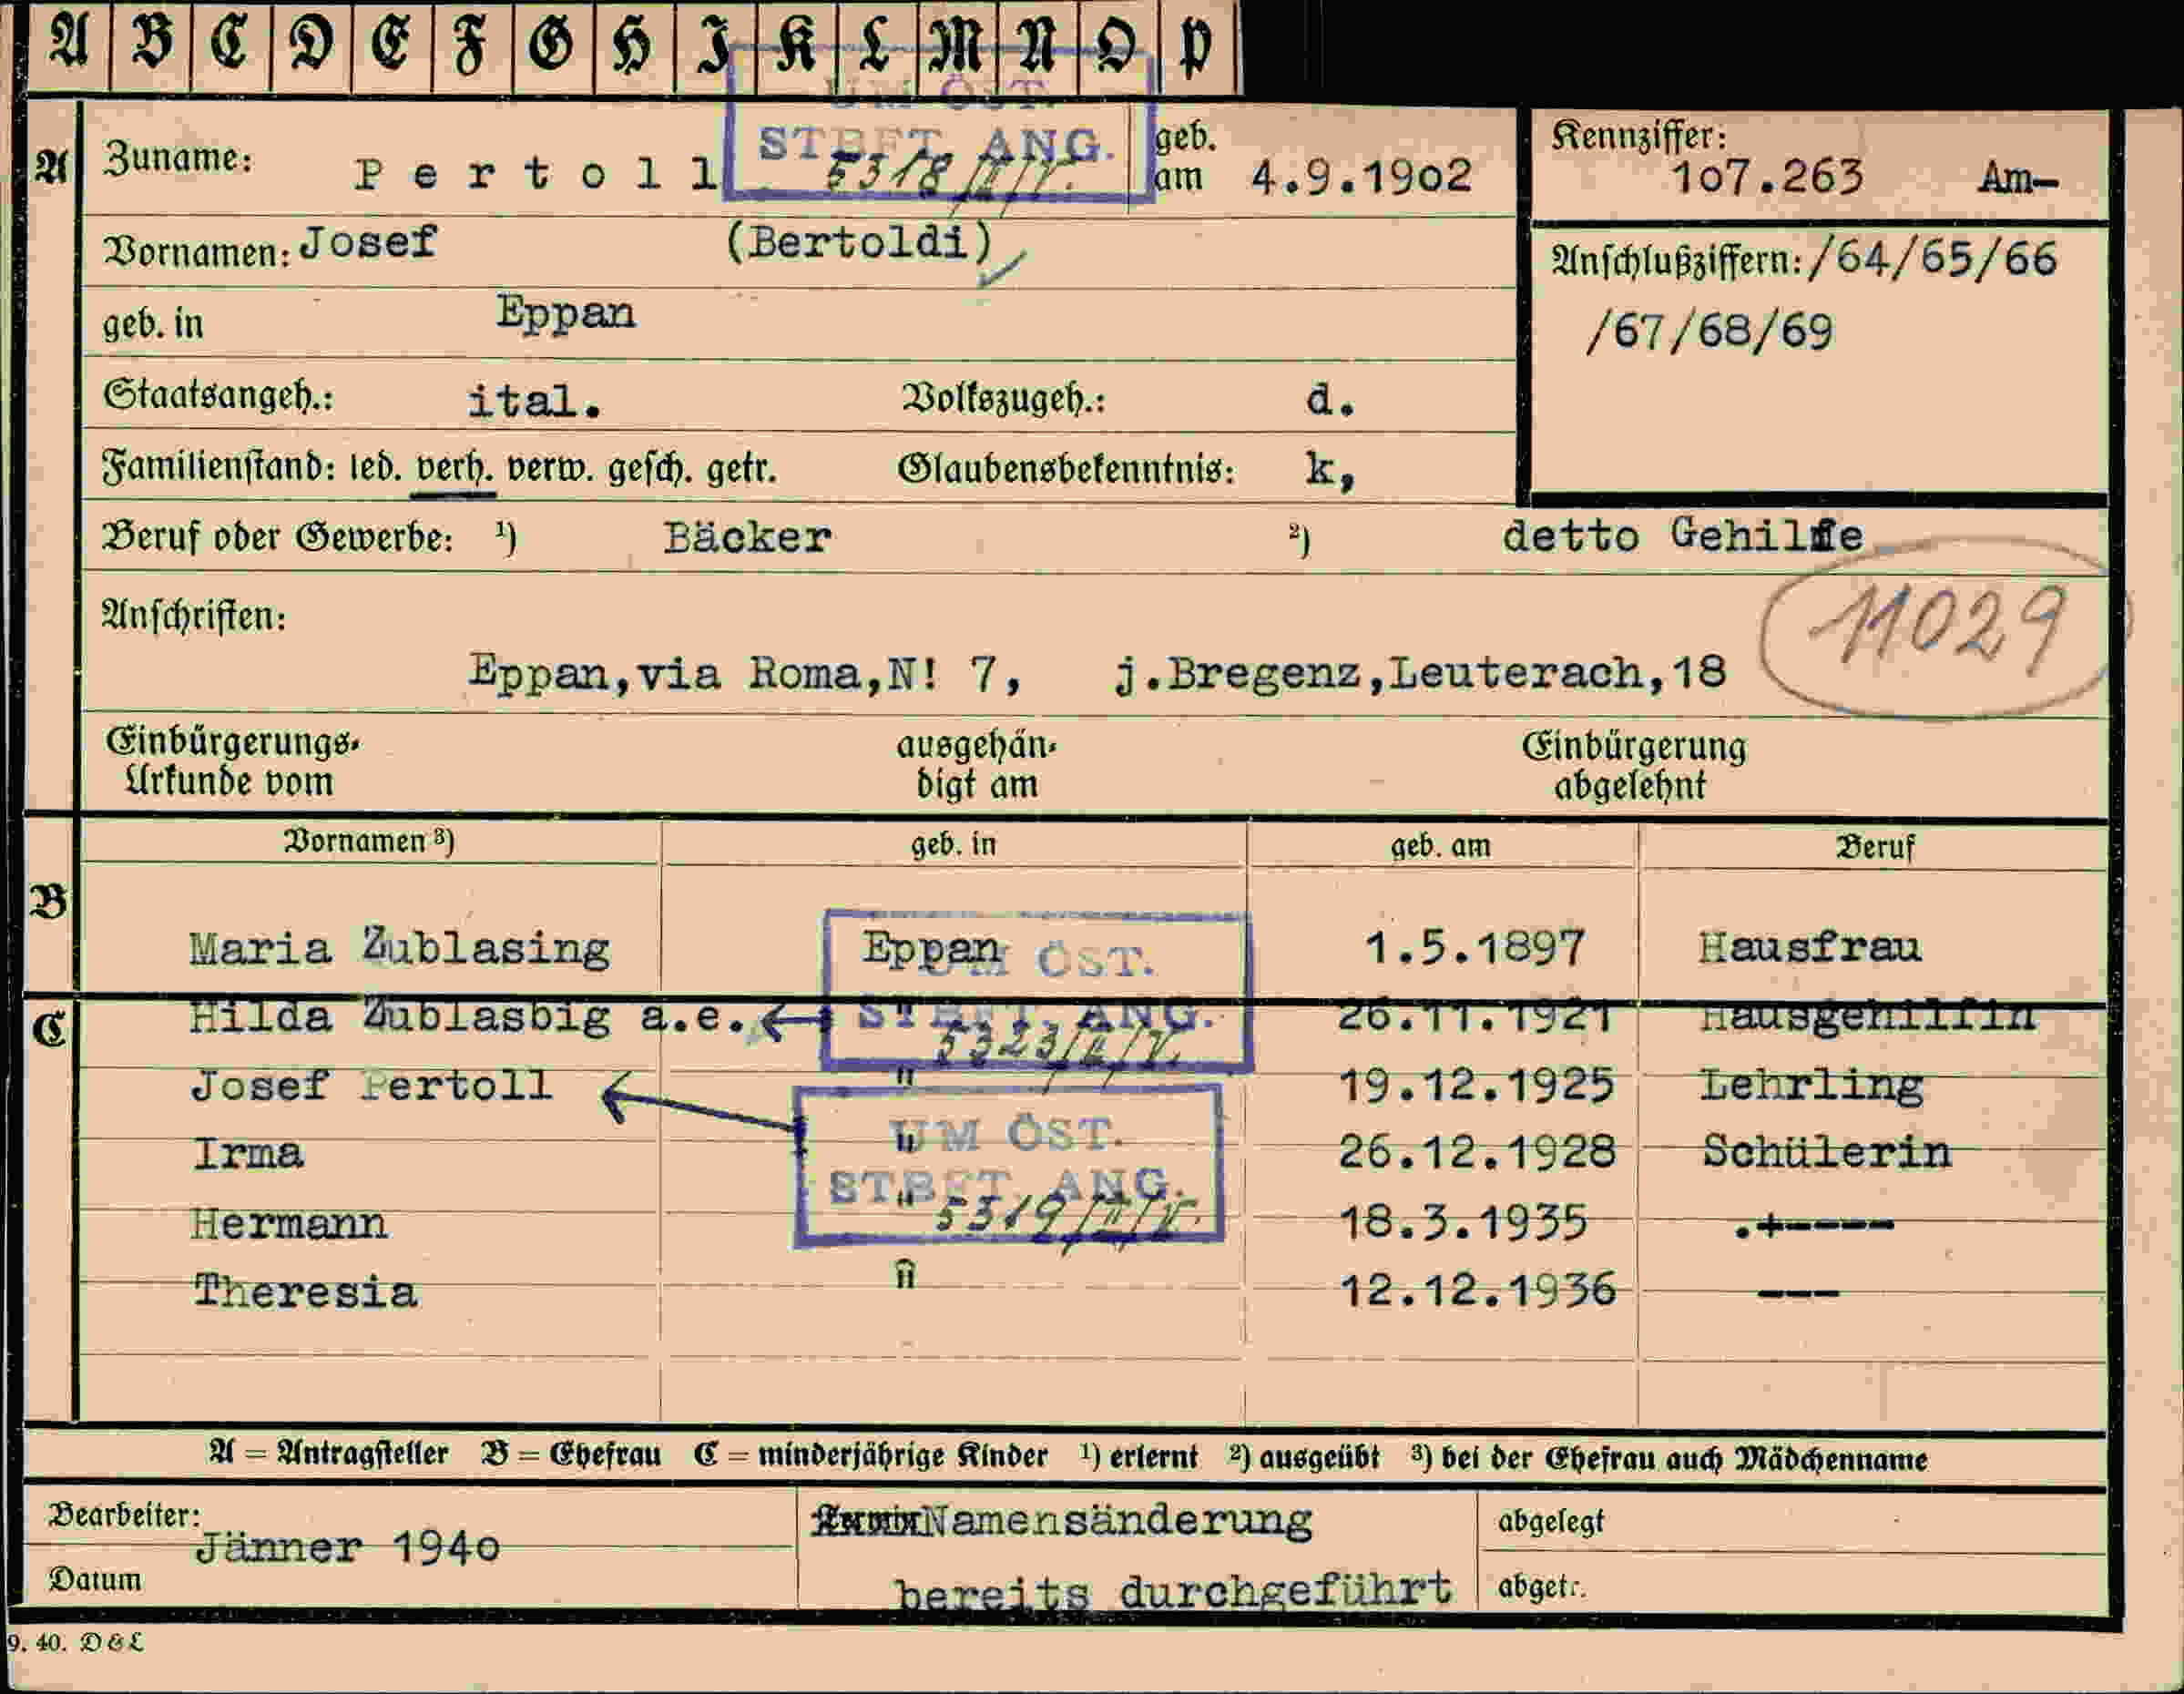 A B C D E F G H I K L M N O P
UM ÖST.
STBFT. ANG.
5318/II/V.
A Zuname: Pertoll geb. am 4.9.1902
Kennziffer: 107.263 Am-
Vornamen: Josef (Bertoldi)
Anschlußziffern: /64/65/66
/67/68/69
geb. in Eppan
Staatsangeh.: ital. Volkszugeh.: d.
Familienstand: led. verh. verw. gesch. getr. Glaubensbekenntnis: k,
Beruf oder Gewerbe: 1) Bäcker 2) detto Gehilfe
Anschriften: 11029
Eppan,via Roma,N! 7, j.Bregenz,Leuterach,18
Einbürgerungs- Urkunde vom ausgehän- digt am Einbürgerung abgelehnt
Vornamen 3) geb. in geb. am Beruf
B
Maria Zublasing Eppan 1.5.1897 Hausfrau
UM ÖST.
STBFT. ANG.
5323/II/V.
C Hilda Zublasbig a.e. " 26.11.1921 Hausgehilfin
Josef Pertoll " 19.12.1925 Lehrling
UM ÖST.
STBFT. ANG.
5319/II/V.
Irma " 26.12.1928 Schülerin
Hermann " 18.3.1935 .+-----
Theresia " 12.12.1936 ---
A = Antragsteller B = Ehefrau C = minderjährige Kinder 1) erlernt 2) ausgeübt 3) bei der Ehefrau auch Mädchenname
Bearbeiter: Namensänderung abgelegt
Jänner 1940
Datum bereits durchgeführt abgetr.
9. 40. D & L